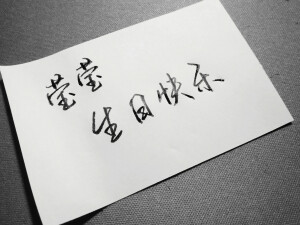 莹莹
生日快乐